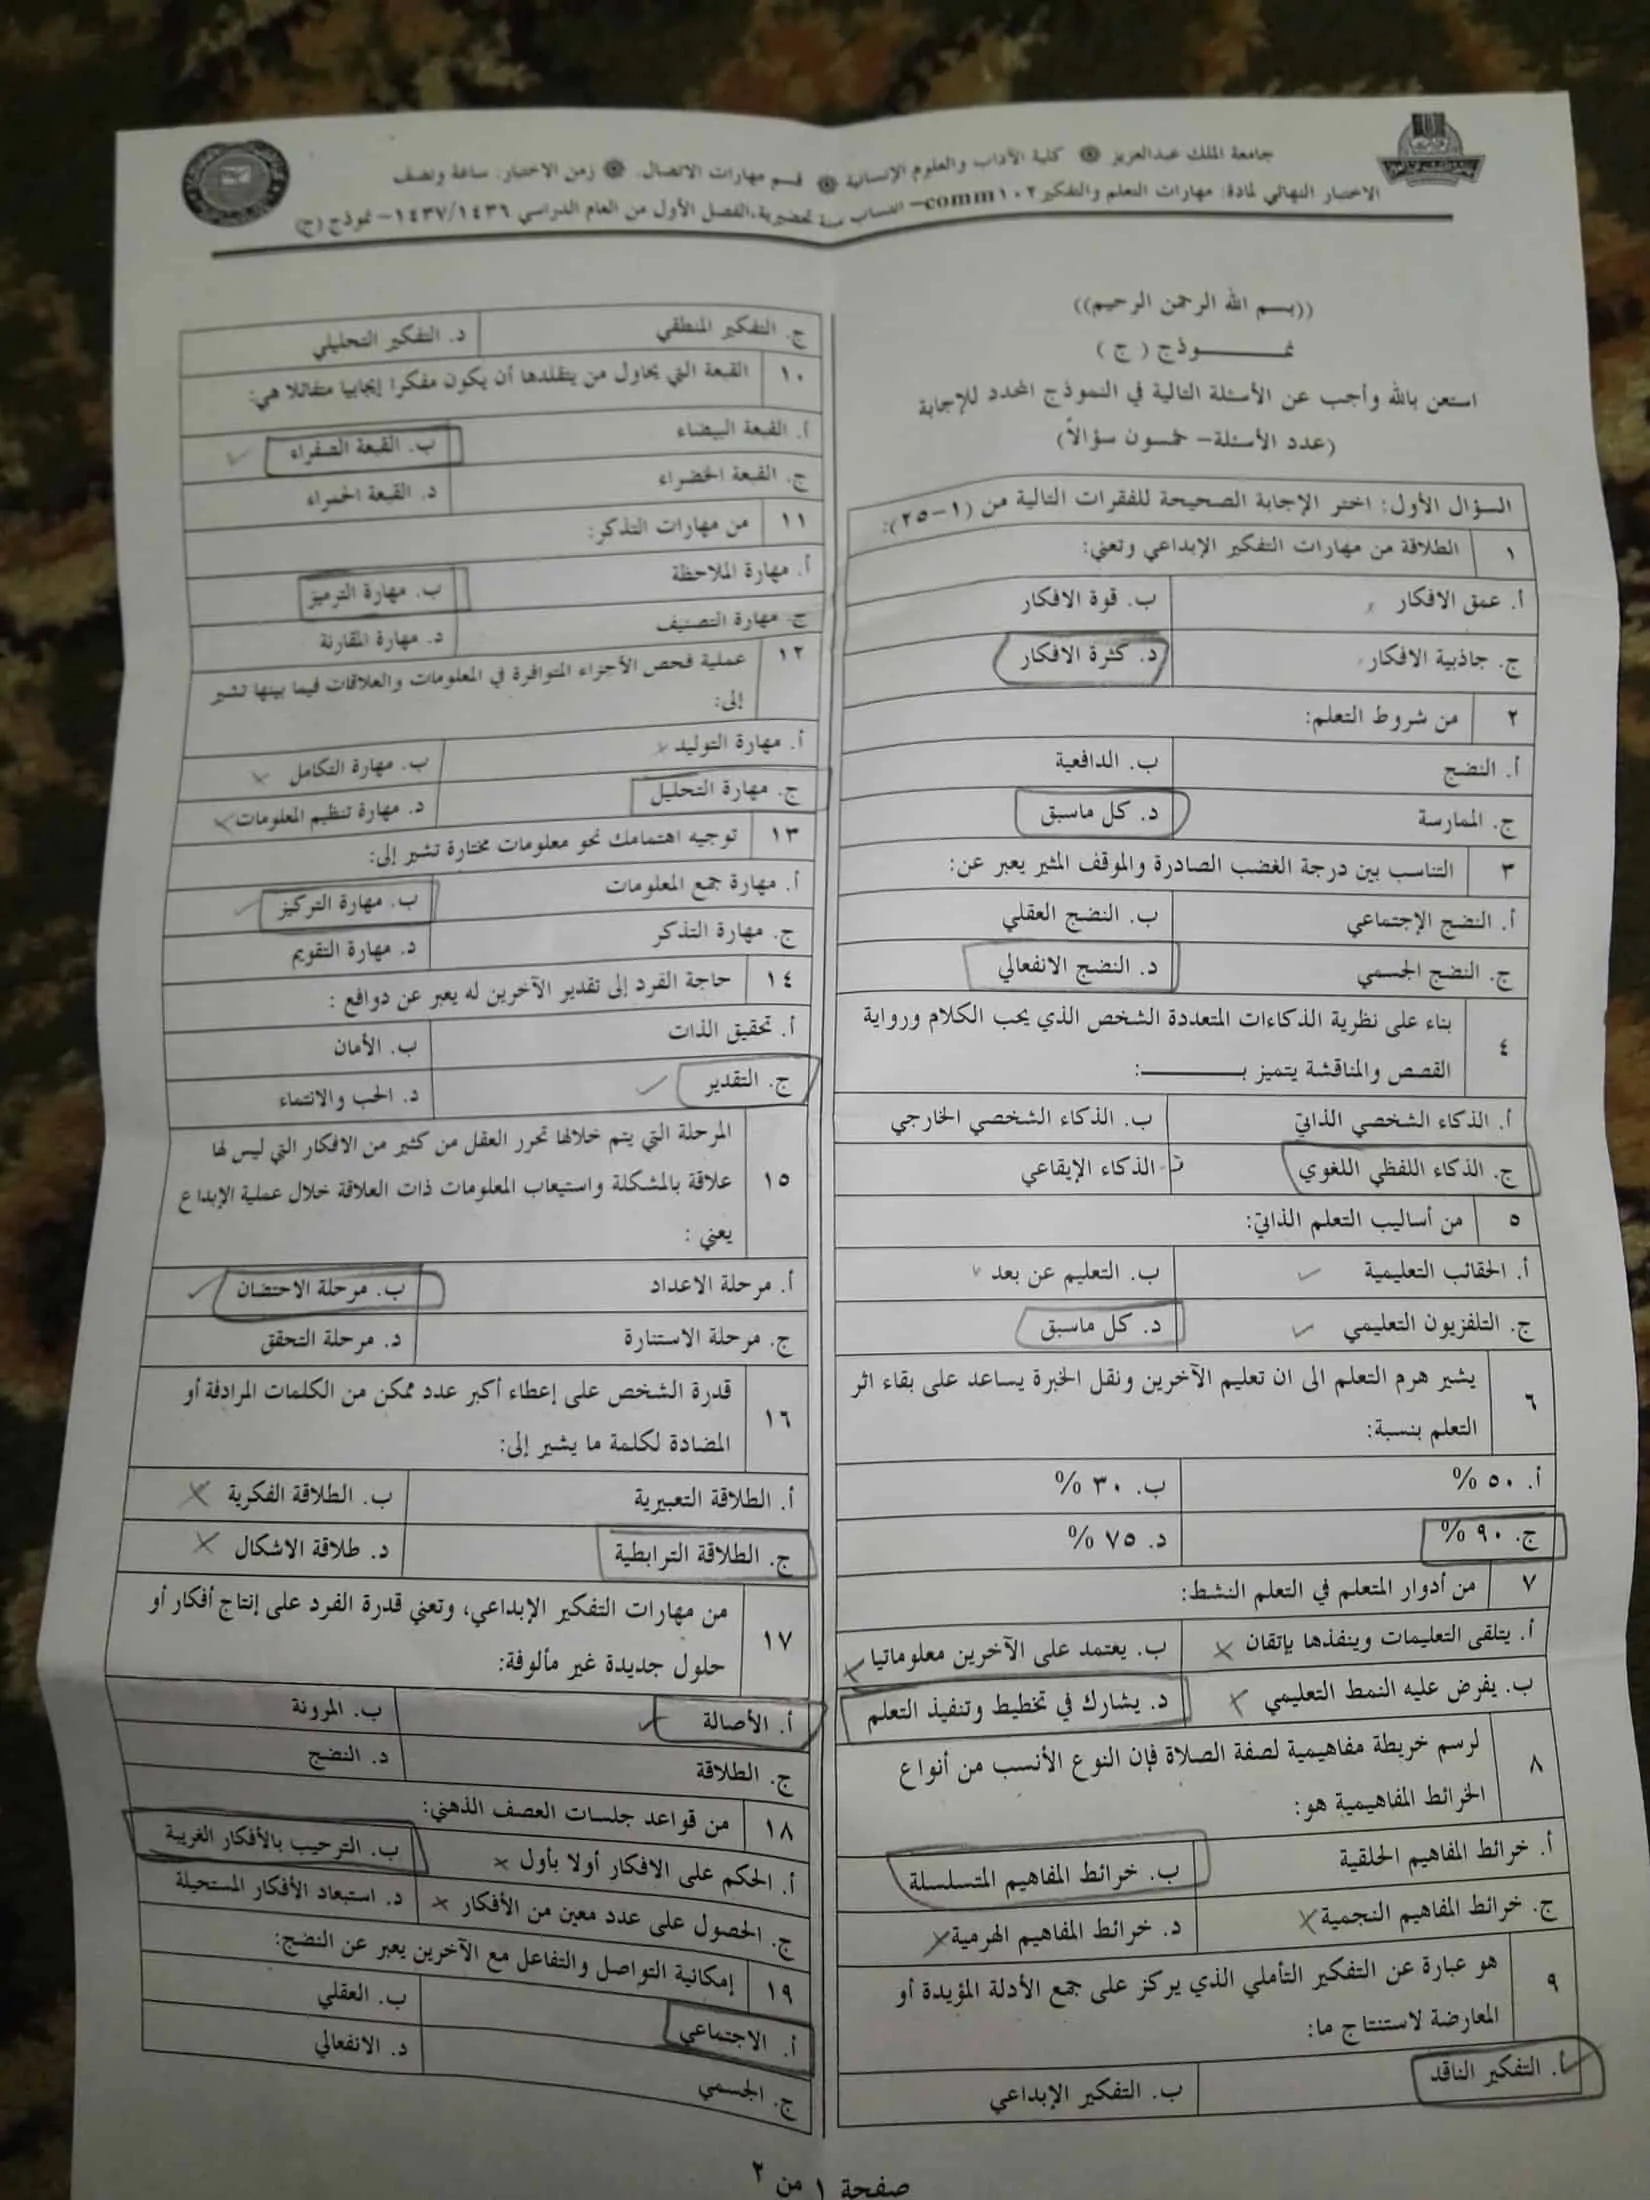 جامعة الملك عبدالعزيز ۞ كلية الآداب والعلوم الإنسانية ۞ قسم مهارات الاتصال. ۞ زمن الاختبار: ساعة ونصف
الاختبار النهائي لمادة: مهارات التعلم والتفكير comm١٠٢– انتساب سنة تحضيرية،الفصل الأول من العام الدراسي ١٤٣٧/١٤٣٦– نموذج (ج)
((بسم الله الرحمن الرحيم))
نمـــــوذج ( ج )
استعن بالله وأجب عن الأسئلة التالية في النموذج المحدد للإجابة
(عدد الأسئلة– خمسون سؤالاً)
السؤال الأول: اختر الإجابة الصحيحة للفقرات التالية من (١–٢٥):
١ الطلاقة من مهارات التفكير الإبداعي وتعني:
أ. عمق الافكار ب. قوة الافكار
ج. جاذبية الافكار د. كثرة الافكار
٢ من شروط التعلم:
أ. النضج ب. الدافعية
ج. الممارسة د. كل ماسبق
٣ التناسب بين درجة الغضب الصادرة والموقف المثير يعبر عن:
أ. النضج الإجتماعي ب. النضج العقلي
ج. النضج الجسمي د. النضج الانفعالي
٤ بناء على نظرية الذكاءات المتعددة الشخص الذي يحب الكلام ورواية
القصص والمناقشة يتميز بـــــــــ:
أ. الذكاء الشخصي الذاتي ب. الذكاء الشخصي الخارجي
ج. الذكاء اللفظي اللغوي د. الذكاء الإيقاعي
٥ من أساليب التعلم الذاتي:
أ. الحقائب التعليمية ب. التعليم عن بعد
ج. التلفزيون التعليمي د. كل ماسبق
٦ يشير هرم التعلم الى ان تعليم الآخرين ونقل الخبرة يساعد على بقاء اثر
التعلم بنسبة:
أ. ٥٠ % ب. ٣٠ %
ج. ٩٠ % د. ٧٥ %
٧ من أدوار المتعلم في التعلم النشط:
أ. يتلقى التعليمات وينفذها بإتقان ب. يعتمد على الآخرين معلوماتيا
ب. يفرض عليه النمط التعليمي د. يشارك في تخطيط وتنفيذ التعلم
٨ لرسم خريطة مفاهيمية لصفة الصلاة فإن النوع الأنسب من أنواع
الخرائط المفاهيمية هو:
أ. خرائط المفاهيم الحلقية ب. خرائط المفاهيم المتسلسلة
ج. خرائط المفاهيم النجمية د. خرائط المفاهيم الهرمية
٩ هو عبارة عن التفكير التأملي الذي يركز على جمع الأدلة المؤيدة أو
المعارضة لاستنتاج ما:
أ. التفكير الناقد ب. التفكير الإبداعي
ج. التفكير المنطقي د. التفكير التحليلي
١٠ القبعة التي يحاول من يتقلدها أن يكون مفكرا إيجابيا متفائلا هي:
أ. القبعة البيضاء ب. القبعة الصفراء
ج. القبعة الخضراء د. القبعة الحمراء
١١ من مهارات التذكر:
أ. مهارة الملاحظة ب. مهارة الترميز
ج. مهارة التصنيف د. مهارة المقارنة
١٢ عملية فحص الأجزاء المتوافرة في المعلومات والعلاقات فيما بينها تشير
إلى:
أ. مهارة التوليد ب. مهارة التكامل
ج. مهارة التحليل د. مهارة تنظيم المعلومات
١٣ توجيه اهتمامك نحو معلومات مختارة تشير إلى:
أ. مهارة جمع المعلومات ب. مهارة التركيز
ج. مهارة التذكر د. مهارة التقويم
١٤ حاجة الفرد إلى تقدير الآخرين له يعبر عن دوافع :
أ. تحقيق الذات ب. الأمان
ج. التقدير د. الحب والانتماء
١٥ المرحلة التي يتم خلالها تحرر العقل من كثير من الافكار التي ليس لها
علاقة بالمشكلة واستيعاب المعلومات ذات العلاقة خلال عملية الإبداع
يعني :
أ. مرحلة الاعداد ب. مرحلة الاحتضان
ج. مرحلة الاستنارة د. مرحلة التحقق
١٦ قدرة الشخص على إعطاء أكبر عدد ممكن من الكلمات المرادفة أو
المضادة لكلمة ما يشير إلى:
أ. الطلاقة التعبيرية ب. الطلاقة الفكرية
ج. الطلاقة الترابطية د. طلاقة الاشكال
١٧ من مهارات التفكير الإبداعي، وتعني قدرة الفرد على إنتاج أفكار أو
حلول جديدة غير مألوفة:
أ. الأصالة ب. المرونة
ج. الطلاقة د. النضج
١٨ من قواعد جلسات العصف الذهني:
أ. الحكم على الافكار أولا بأول ب. الترحيب بالأفكار الغريبة
ج. الحصول على عدد معين من الأفكار د. استبعاد الأفكار المستحيلة
١٩ إمكانية التواصل والتفاعل مع الآخرين يعبر عن النضج:
أ. الاجتماعي ب. العقلي
ج. الجسمي د. الانفعالي
صفحة ١ من ٢